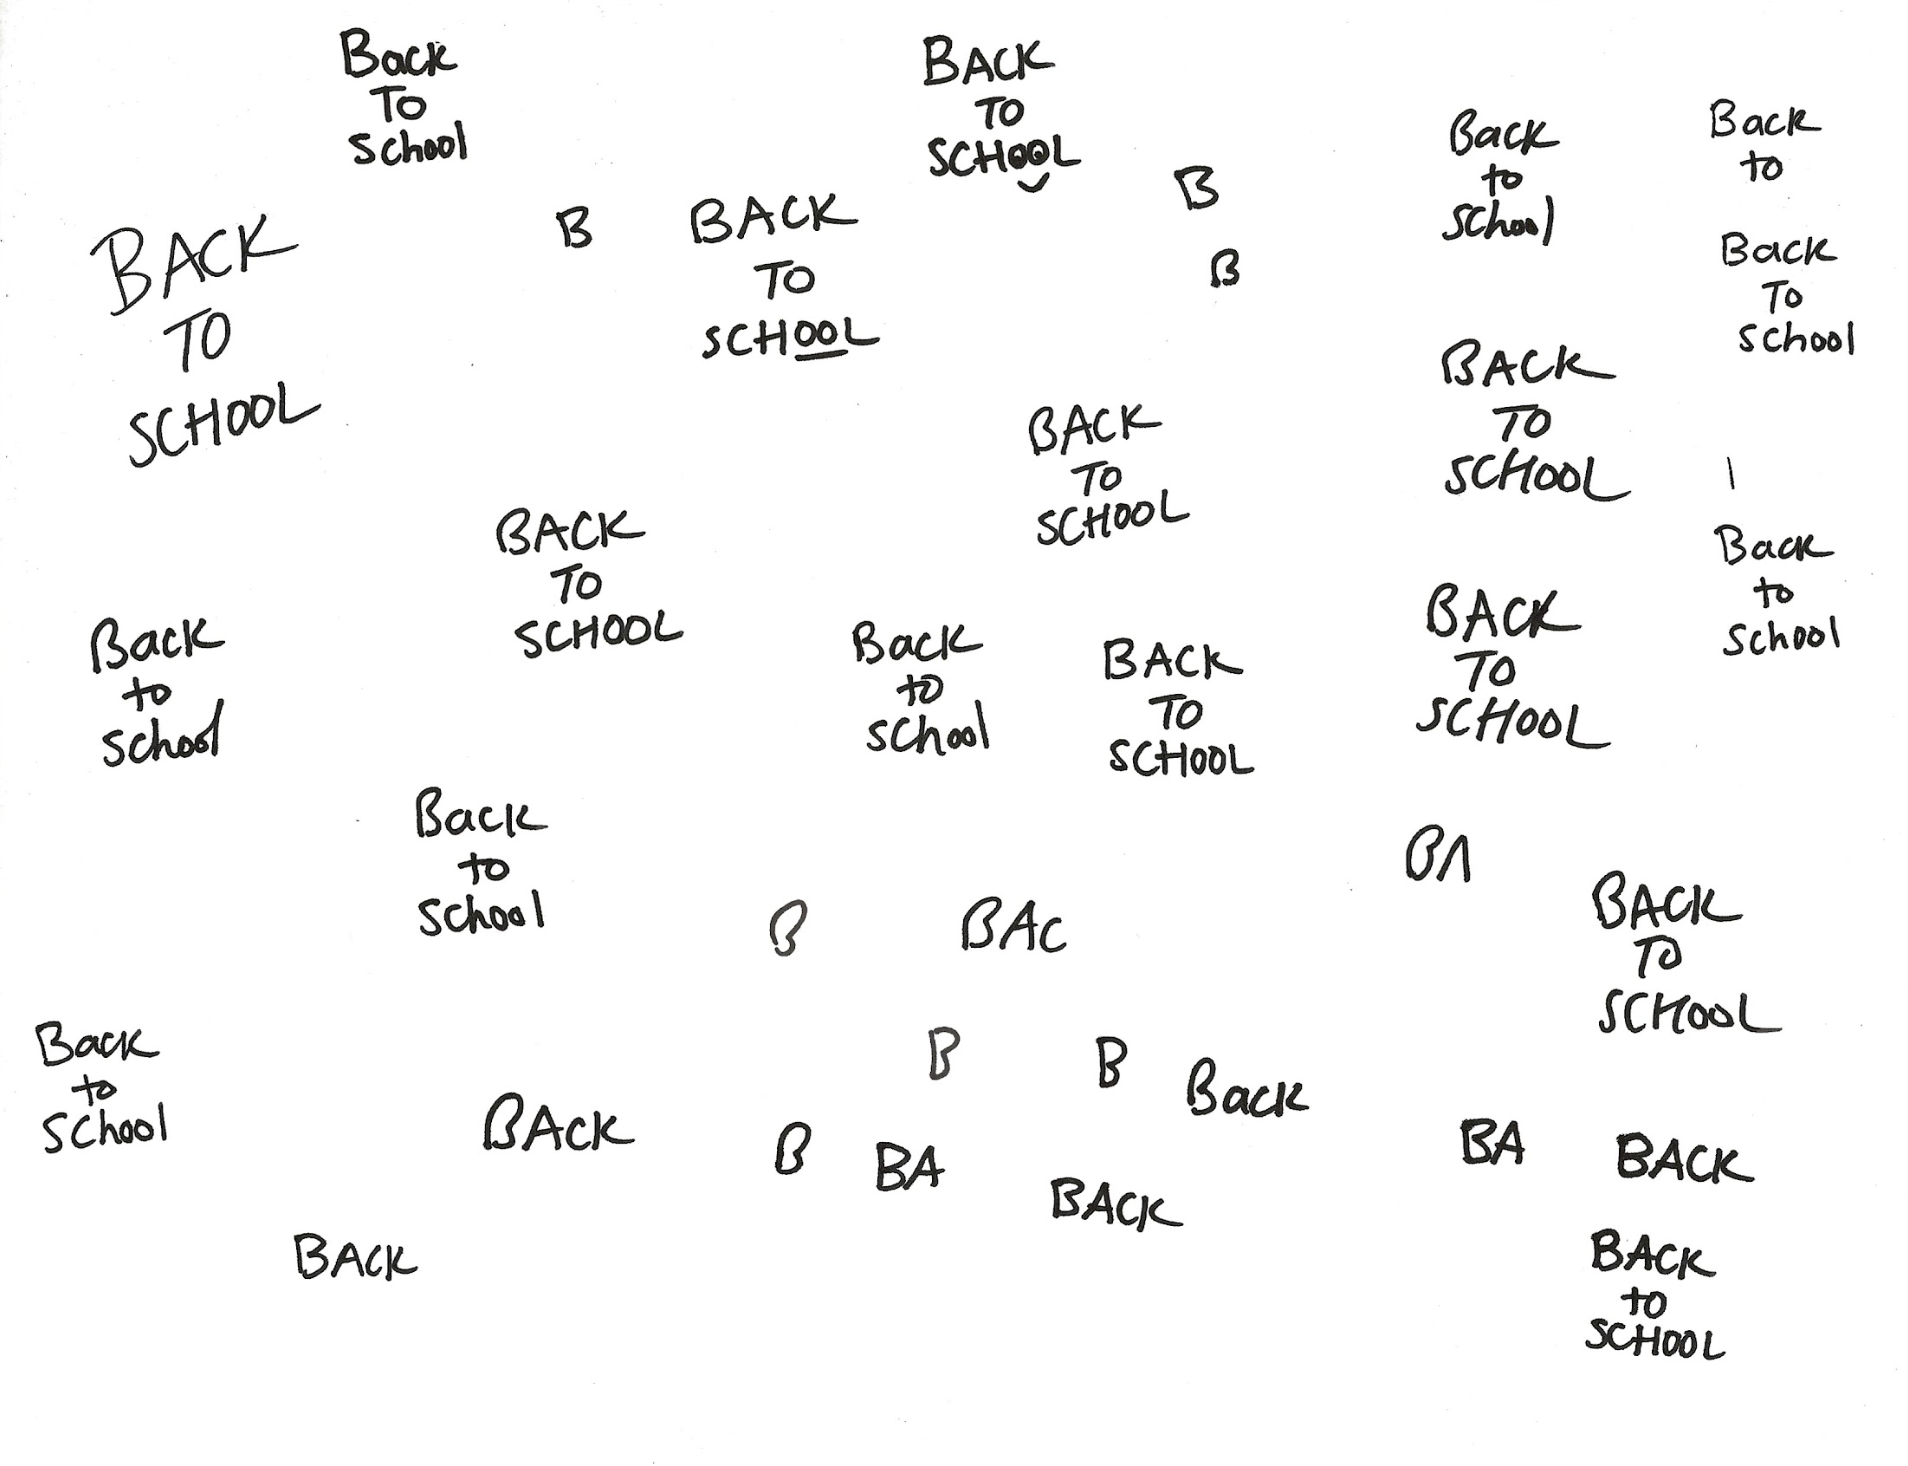 Back
To
School
BACK
TO
SCHOOL
Back
to
School
Back
to
B
B
BACK
TO
SCHOOL
B
BACK
TO
SCHOOL
Back
To
School
BACK
TO
SCHOOL
BACK
TO
SCHOOL
BACK
TO
SCHOOL
Back
to
School
Back
to
School
BACK
TO
SCHOOL
Back
to
School
BACK
TO
SCHOOL
Back
to
School
B
BAC
BA
BACK
TO
SCHOOL
Back
to
School
BACK
B
B
Back
B
BA
BACK
BA
BACK
BACK
BACK
to
SCHOOL